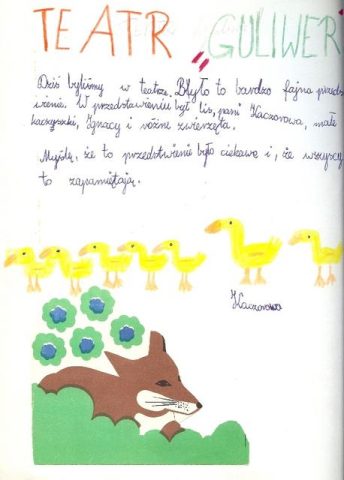 TEATR „GULIWER"
Dziś byliśmy w teatrze. Było to bardzo fajna przeds
tawienie. W przedstawieniu był lis, pani Kaczorowa, małe
kaczuszki, Ignacy i różne zwierzęta.
Myślę, że to przedstwienie było ciekawe i, że wszyscy
to zapamiętają.
Kaczorowa